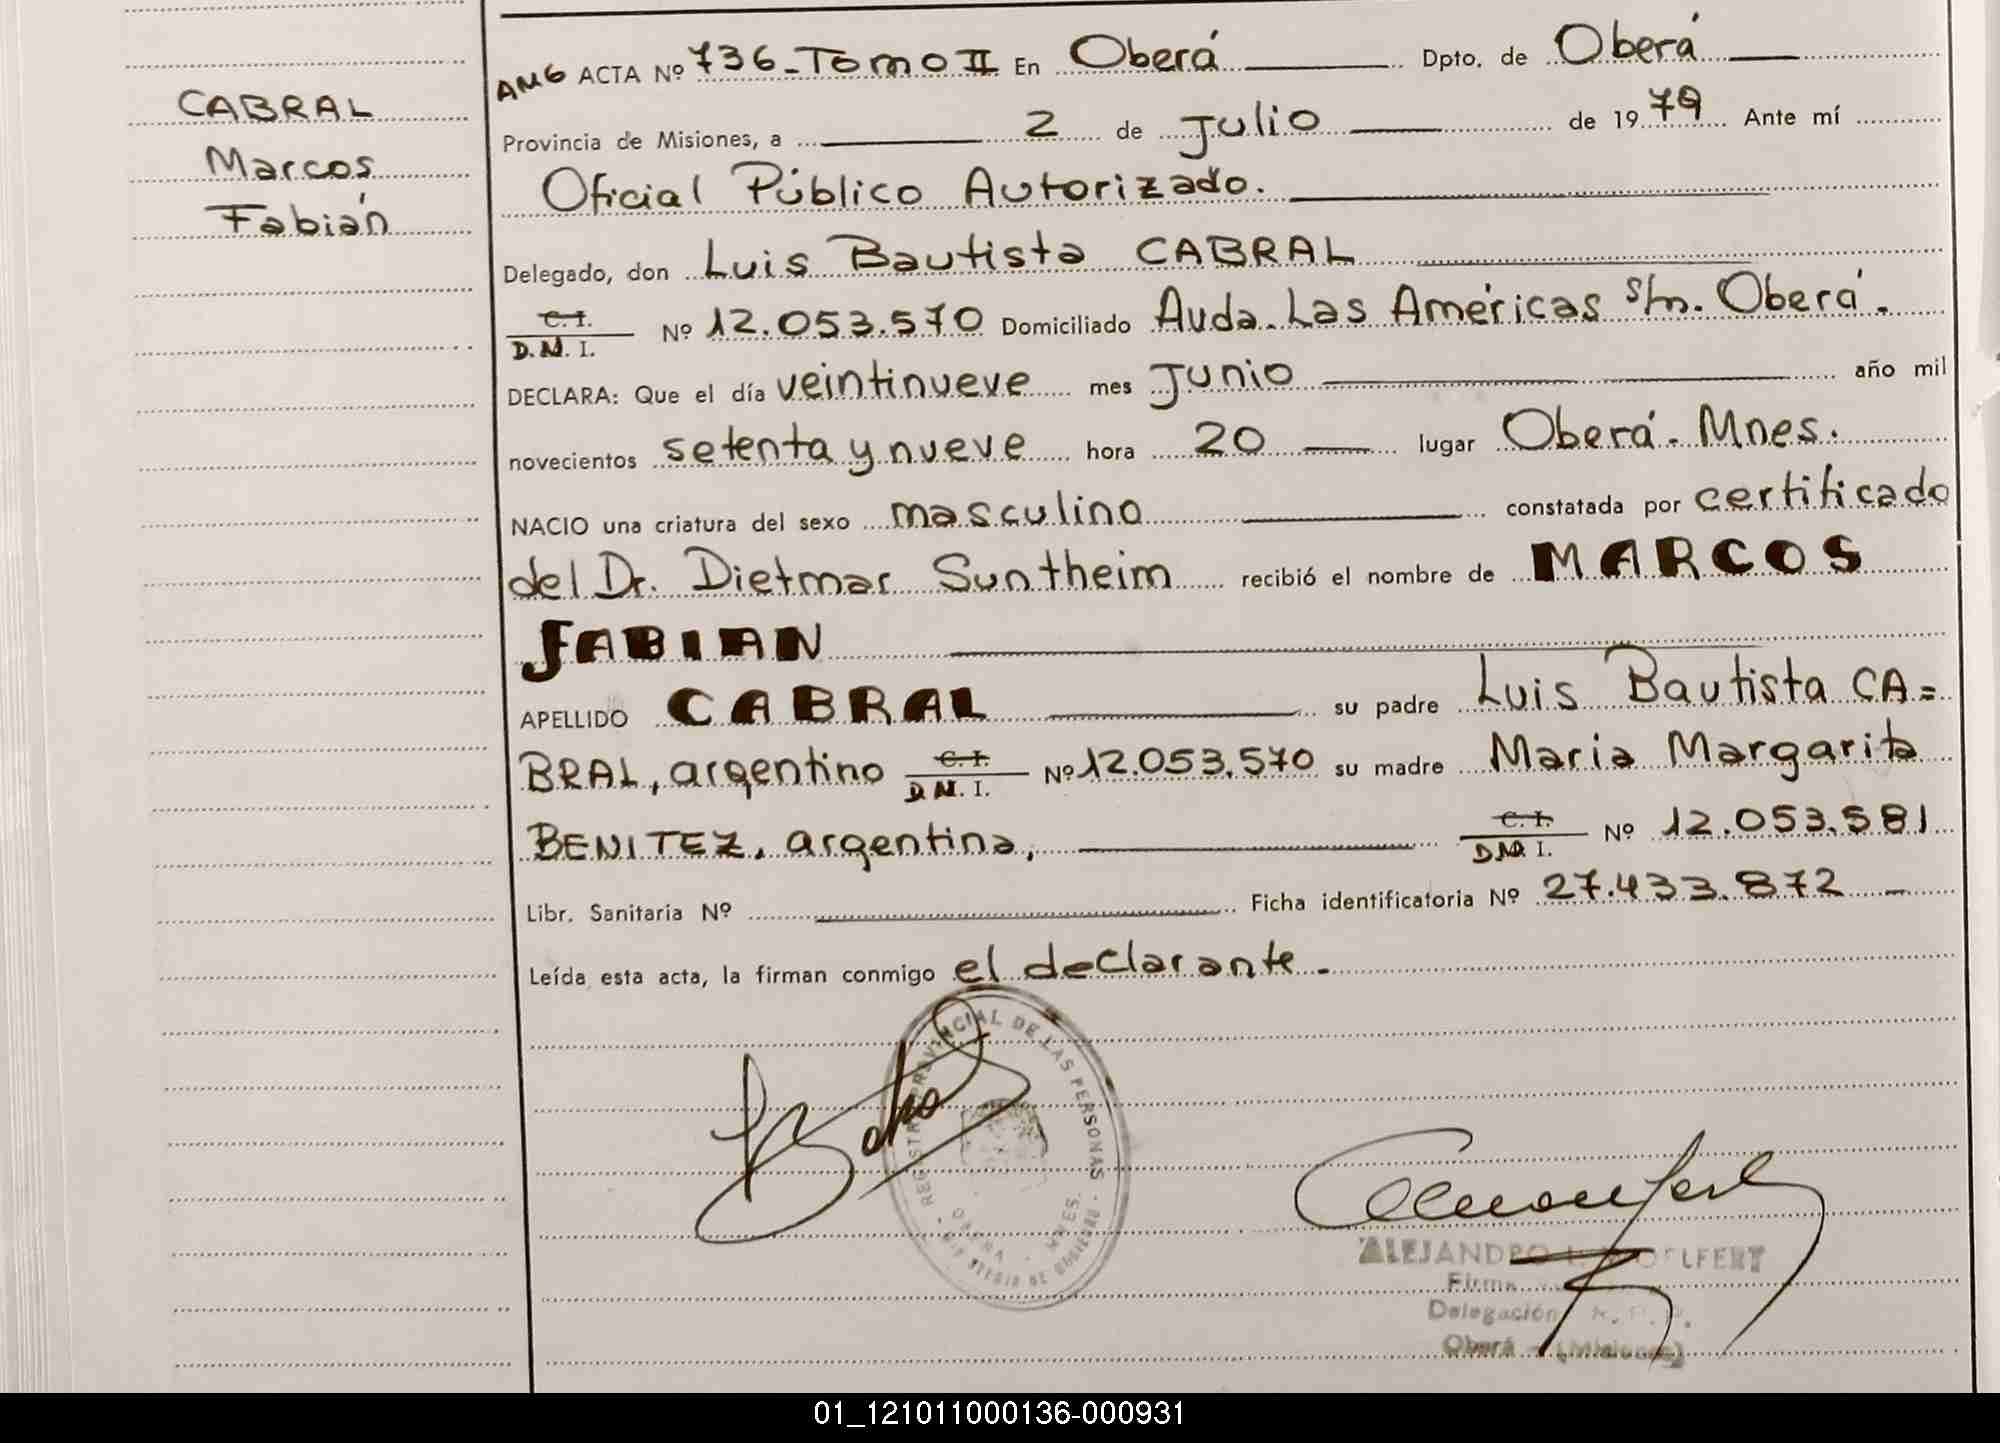 CABRAL
Marcos
Fabián
AMG ACTA Nº 736-Tomo II En Oberá Dpto. de Oberá
Provincia de Misiones, a 2 de Julio de 1979 Ante mí
Oficial Público Autorizado.
Delegado, don Luis Bautista CABRAL
C.I.
D.N.I. Nº 12.053.570 Domiciliado Avda. Las Américas s/n. Oberá.
DECLARA: Que el día veintinueve mes Junio año mil
novecientos setenta y nueve hora 20 lugar Oberá. Mnes.
NACIO una criatura del sexo masculino constatada por certificado
del Dr. Dietmar Suntheim recibió el nombre de MARCOS
FABIAN
APELLIDO CABRAL su padre Luis Bautista CA=
BRAL, argentino C.I. D.N.I. Nº 12.053.570 su madre Maria Margarita
BENITEZ, argentina, C.I. D.N.I. Nº 12.053.581
Libr. Sanitaria Nº Ficha identificatoria Nº 27.433.872
Leída esta acta, la firman conmigo el declarante.
REGISTRO PROVINCIAL DE LAS PERSONAS
OBERA - MNES.
ALEJANDRO
Firma
Delegación R. P. P.
Oberá - (Misiones)
01_121011000136-000931